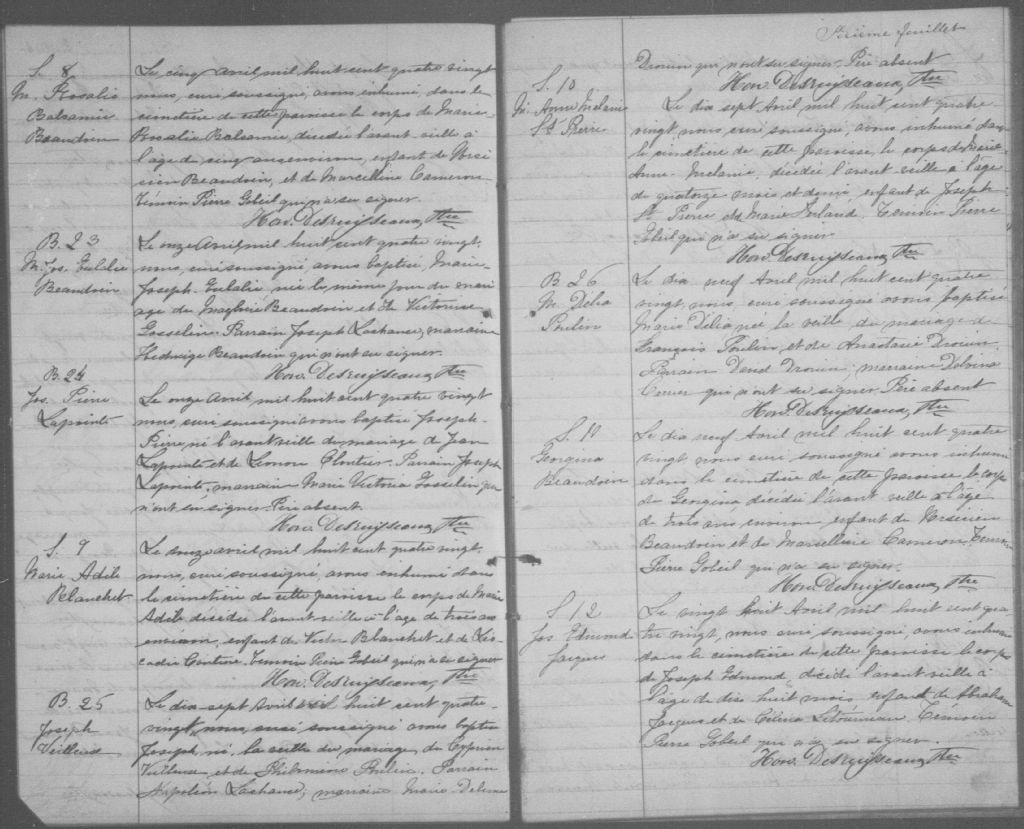 S. 8
M. Rosalie
Balsamie
Beaudoin
Le cinq avril mil huit cent quatre vingt
nous, curé soussigné, avons inhumé, dans le
cimetière de cette paroisse le corps de Marie-
Rosalie Balsamie, décédée l'avant veille à
l'âge de cinq ans environ, enfant de Nar-
cien Beaudoin, et de Marcelline Cameron
Témoin Pierre Gobeil qui n'a su signer.
Hon. DesRuisseaux, Ptre
B. 23
M. Jos. Eulalie
Beaudoin
Le onze Avril mil huit cent quatre vingt,
nous, curé soussigné, avons baptisé, Marie-
Joseph-Eulalie née le même jour du mari-
age de Magloire Beaudoin et de Victorine
Gosselin. Parrain Joseph Lachance, marraine
Hedwige Beaudoin qui n'ont su signer.
Hon. DesRuisseaux, Ptre
B. 24
Jos. Pierre
Lapointe
Le onze Avril, mil huit cent quatre vingt
nous, curé soussigné avons baptisé Joseph-
Pierre, né l'avant veille du mariage de Jean
Lapointe et de Léonore Cloutier. Parrain Joseph
Lapointe, marraine Marie Victoria Gosselin qui
n'ont su signer. Père absent.
Hon. DesRuisseaux, Ptre
S. 9
Marie Adèle
Blanchet
Le onze avril mil huit cent quatre vingt,
nous, curé soussigné, avons inhumé dans
le cimetière de cette paroisse le corps de Marie
Adèle décédée l'avant veille à l'âge de trois ans
environ, enfant de Victor Blanchet et de Léo-
cadie Couture. Témoin Pierre Gobeil qui n'a su signer
Hon. DesRuisseaux, Ptre
B. 25
Joseph
Veilleux
Le dix-sept Avril mil huit cent quatre-
vingt, nous, curé soussigné avons baptisé
Joseph, né, la veille du mariage de Cyprien
Veilleux et de Philomène Poulin. Parrain
Napoléon Lachance, marraine Marie Delima
Sixième feuillet
Drouin qui n'ont su signer. Père absent
Hon. DesRuisseaux, Ptre
S. 10
M. Anne Mélanie
St Pierre
Le dix sept Avril mil huit cent quatre-
vingt, nous, curé soussigné, avons inhumé dans
le cimetière de cette paroisse, le corps de Marie-
Anne-Mélanie, décédée l'avant veille à l'âge
de quatorze mois et demi, enfant de Joseph
St Pierre et de Marie Ferland. Témoin Pierre
Gobeil qui n'a su signer
Hon. DesRuisseaux, Ptre
B 26
M. Délia
Poulin
Le dix neuf Avril mil huit cent quatre
vingt, nous, curé soussigné avons baptisé
Marie Délia née la veille du mariage de
François Poulin, et de Anastasie Drouin.
Parrain David Drouin; marraine Delvina
qui n'ont su signer. Père absent
Hon. DesRuisseaux, Ptre
S. 11
Georgina
Beaudoin
Le dix neuf Avril mil huit cent quatre
vingt, nous curé soussigné avons inhumé
dans le cimetière de cette paroisse le corps
de Georgina décédée l'avant veille à l'âge
de trois ans environ enfant de Narcien
Beaudoin et de Marcelline Cameron. Témoin
Pierre Gobeil qui n'a su signer.
Hon. DesRuisseaux, Ptre
S. 12
Jos. Edmond
Jacques
Le vingt huit Avril mil huit cent qua-
tre vingt, nous curé soussigné, avons inhumé
dans le cimetière de cette paroisse le corps
de Joseph Edmond, décédé l'avant veille à
l'âge de dix huit mois enfant de Abraham
Jacques et de Létourneau. Témoin
Pierre Gobeil qui n'a su signer.
Hon. DesRuisseaux, Ptre